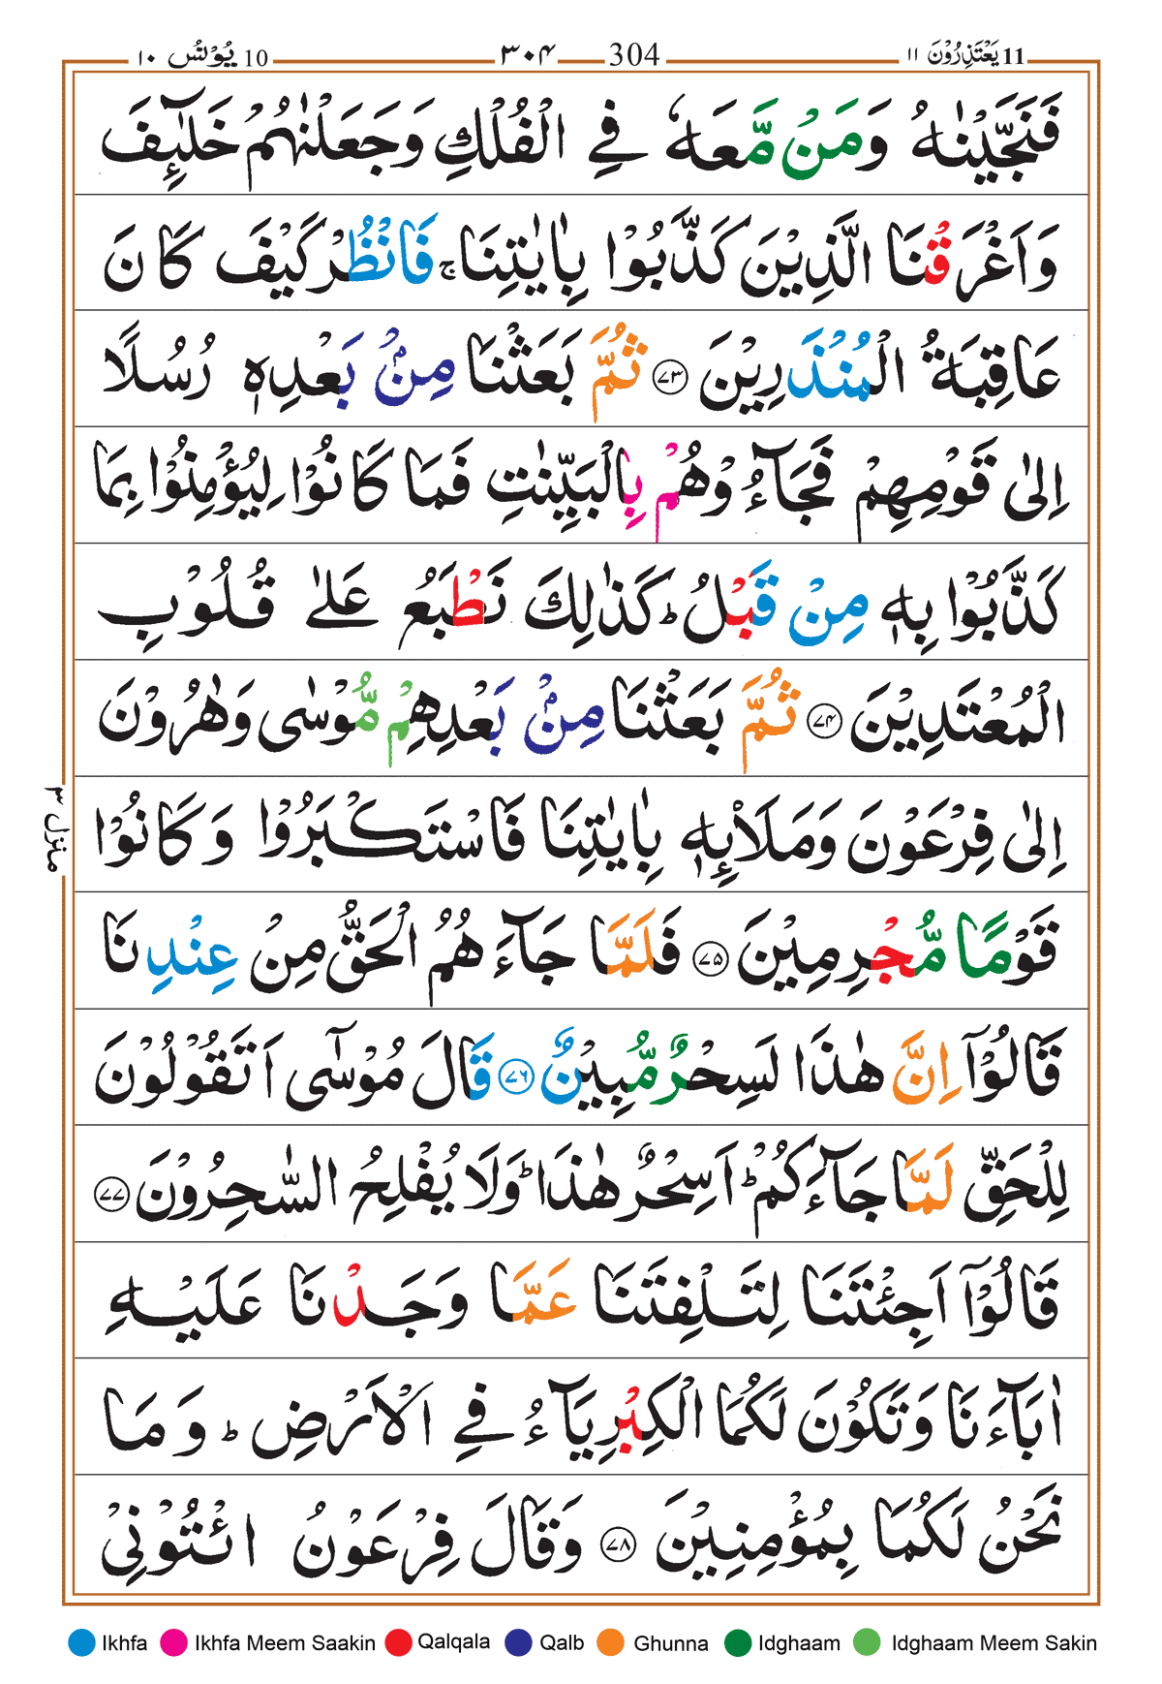 11 يَعْتَذِرُوْنَ ۱۱ 304 ۳۰۴ 10 يُوْنُس ۱۰
فَنَجَّيْنٰهُ وَمَنْ مَّعَهٗ فِي الْفُلْكِ وَجَعَلْنٰهُمْ خَلٰٓئِفَ
وَاَغْرَقْنَا الَّذِيْنَ كَذَّبُوْا بِاٰيٰتِنَا ۚ فَانْظُرْ كَيْفَ كَانَ
عَاقِبَةُ الْمُنْذَرِيْنَ ۷۳ ثُمَّ بَعَثْنَا مِنْۢ بَعْدِهٖ رُسُلًا
اِلٰى قَوْمِهِمْ فَجَآءُوْهُمْ بِالْبَيِّنٰتِ فَمَا كَانُوْا لِيُؤْمِنُوْا بِمَا
كَذَّبُوْا بِهٖ مِنْ قَبْلُ ؕ كَذٰلِكَ نَطْبَعُ عَلٰى قُلُوْبِ
الْمُعْتَدِيْنَ ۷۴ ثُمَّ بَعَثْنَا مِنْۢ بَعْدِهِمْ مُّوْسٰى وَهٰرُوْنَ
اِلٰى فِرْعَوْنَ وَمَلَا۟ئِهٖ بِاٰيٰتِنَا فَاسْتَكْبَرُوْا وَكَانُوْا
منزل ۳
قَوْمًا مُّجْرِمِيْنَ ۷۵ فَلَمَّا جَآءَهُمُ الْحَقُّ مِنْ عِنْدِنَا
قَالُوْۤا اِنَّ هٰذَا لَسِحْرٌ مُّبِيْنٌ ۷۶ قَالَ مُوْسٰۤى اَتَقُوْلُوْنَ
لِلْحَقِّ لَمَّا جَآءَكُمْ ؕ اَسِحْرٌ هٰذَا ؕ وَلَا يُفْلِحُ السّٰحِرُوْنَ ۷۷
قَالُوْۤا اَجِئْتَنَا لِتَلْفِتَنَا عَمَّا وَجَدْنَا عَلَيْهِ
اٰبَآءَنَا وَتَكُوْنَ لَكُمَا الْكِبْرِيَآءُ فِي الْاَرْضِ ؕ وَمَا
نَحْنُ لَكُمَا بِمُؤْمِنِيْنَ ۷۸ وَقَالَ فِرْعَوْنُ ائْتُوْنِيْ
Ikhfa Ikhfa Meem Saakin Qalqala Qalb Ghunna Idghaam Idghaam Meem Sakin